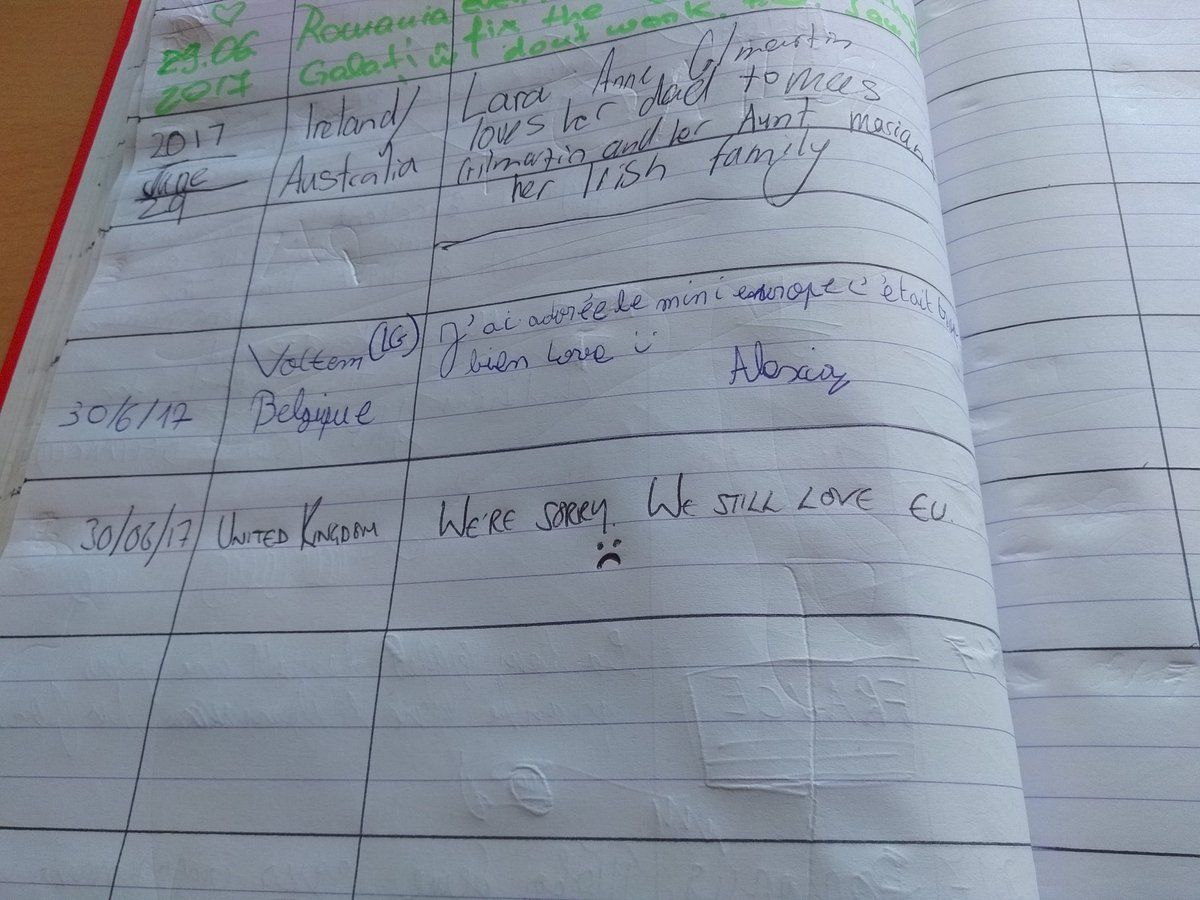 29.06 Romania
2017 Galati fix the
dont work
2017 Ireland/ Lara Anne Gilmartin
June Australia loves her dad tomas
29 Gilmartin and her Aunt marian
her Irish family
Vottem (LG) J'ai adorée le mini europe c'était
bien love
Alexia
30/6/17 Belgique
30/06/17 UNITED KINGDOM WE'RE SORRY. WE STILL LOVE EU.
FRANCE